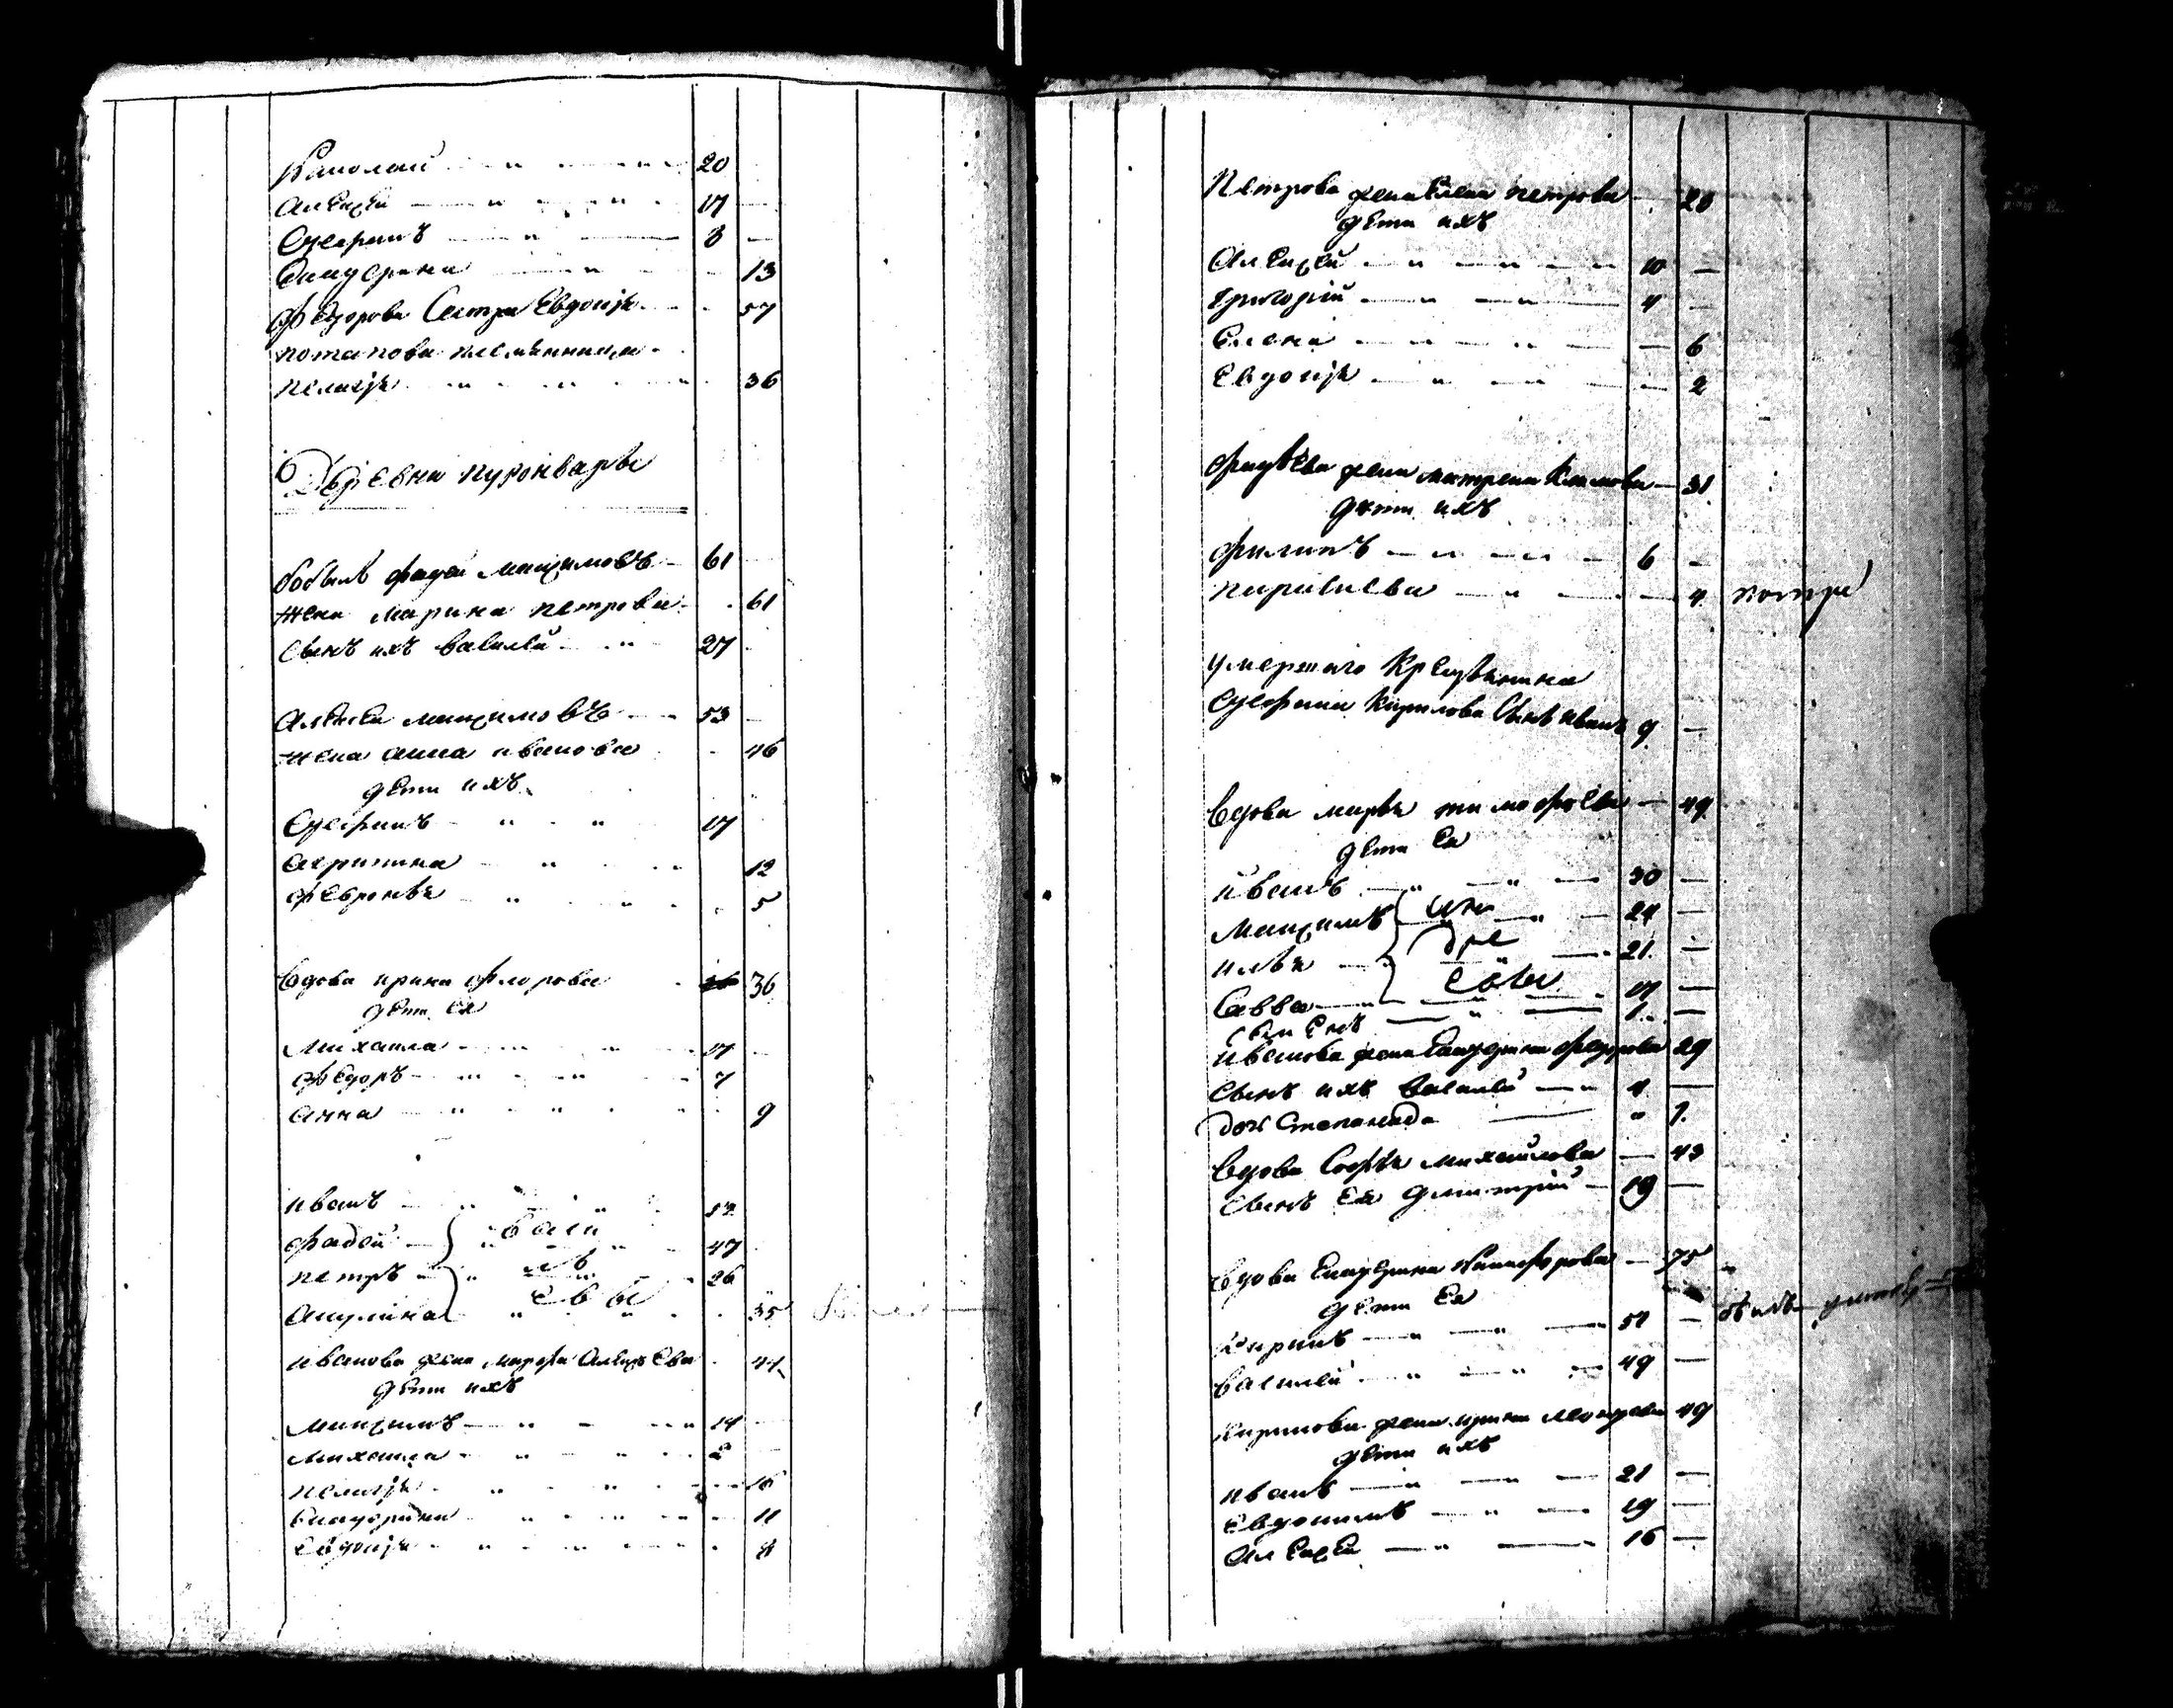 Николай 20
Алексей 17
Стефанъ 8
Екатерина 13
Федорова Сестра Евдокия 57
потапова племянница
пелагия 36
Деревня пуконвары
бобыль фадей максимовъ 61
жена марина петрова 61
Сынъ ихъ василей 27
Алексей максимовъ 53
жена анна иванова 46
дети ихъ
Стефанъ 17
акрипина 12
февронья 5
вдова ирина флорова 36
дети Ея
Михаила 17
федоръ 7
анна 9
иванъ
фадей васи 47
петръ ль 26
Акулина евы 35
иванова жена марфа Алексеева 44
дети ихъ
максимъ 14
михаила 2
пелагия 16
Екатерина 11
Евдокия 8
Петрова жена Елена петрова 28
дети ихъ
Алексей 10
Григорий 4
Елена 6
Евдокия 2
фадеева жена матрена Климова 31
дети ихъ
филипъ 6
параскева 4
умершаго Крестьянина
Стефана Кирилова Сынъ иванъ 9
Вдова марья тимофеева 49
дети Ея
иванъ 30
Максимъ 24
илья 21
Савва 17
1
иванова жена Екатерина федорова 29
Сынъ ихъ василей 4
доч Степанида 1
Вдова Софья михайлова 43
Сынъ Ея дмитрий 19
Вдова Екатерина Никифорова 75
дети Ея
Кирилъ 51
василей 49
Кирилова жена ирина 49
дети ихъ
иванъ 21
Евдокимъ 19
Алексей 16